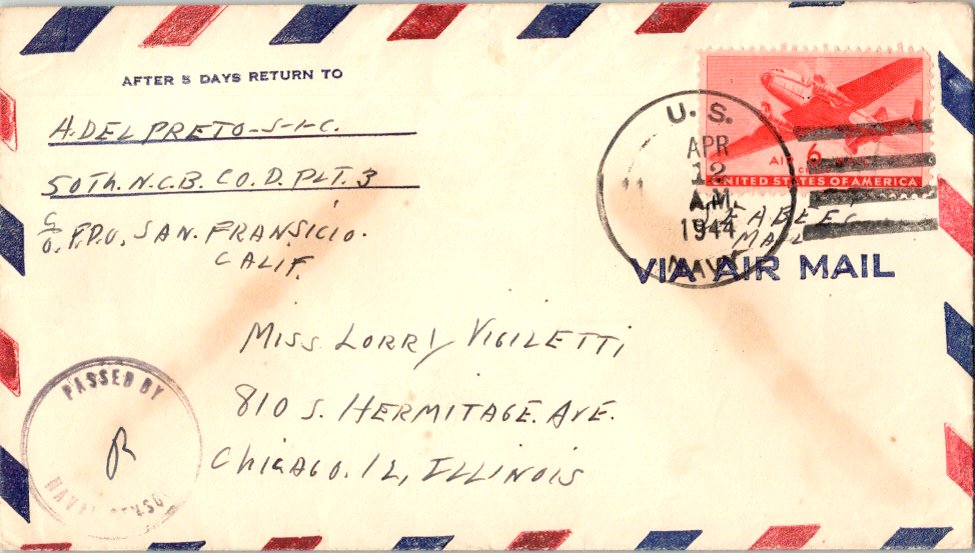 AFTER 5 DAYS RETURN TO
A. DEL PRETO-S-1-C.
50Th. N.C.B. CO. D. PLT. 3
C/O. F.P.O. SAN. FRANSICIO.
CALIF.
U.S.
APR
12
A.M.
1944
NAVY
AIR 6
UNITED STATES OF AMERICA
SEABEES
MAIL
VIA AIR MAIL
MISS LORRY VIGILETTI
810 S. HERMITAGE. AVE.
ChICAGO. 12, ILLINOIS
PASSED BY
R
NAVAL CENSOR